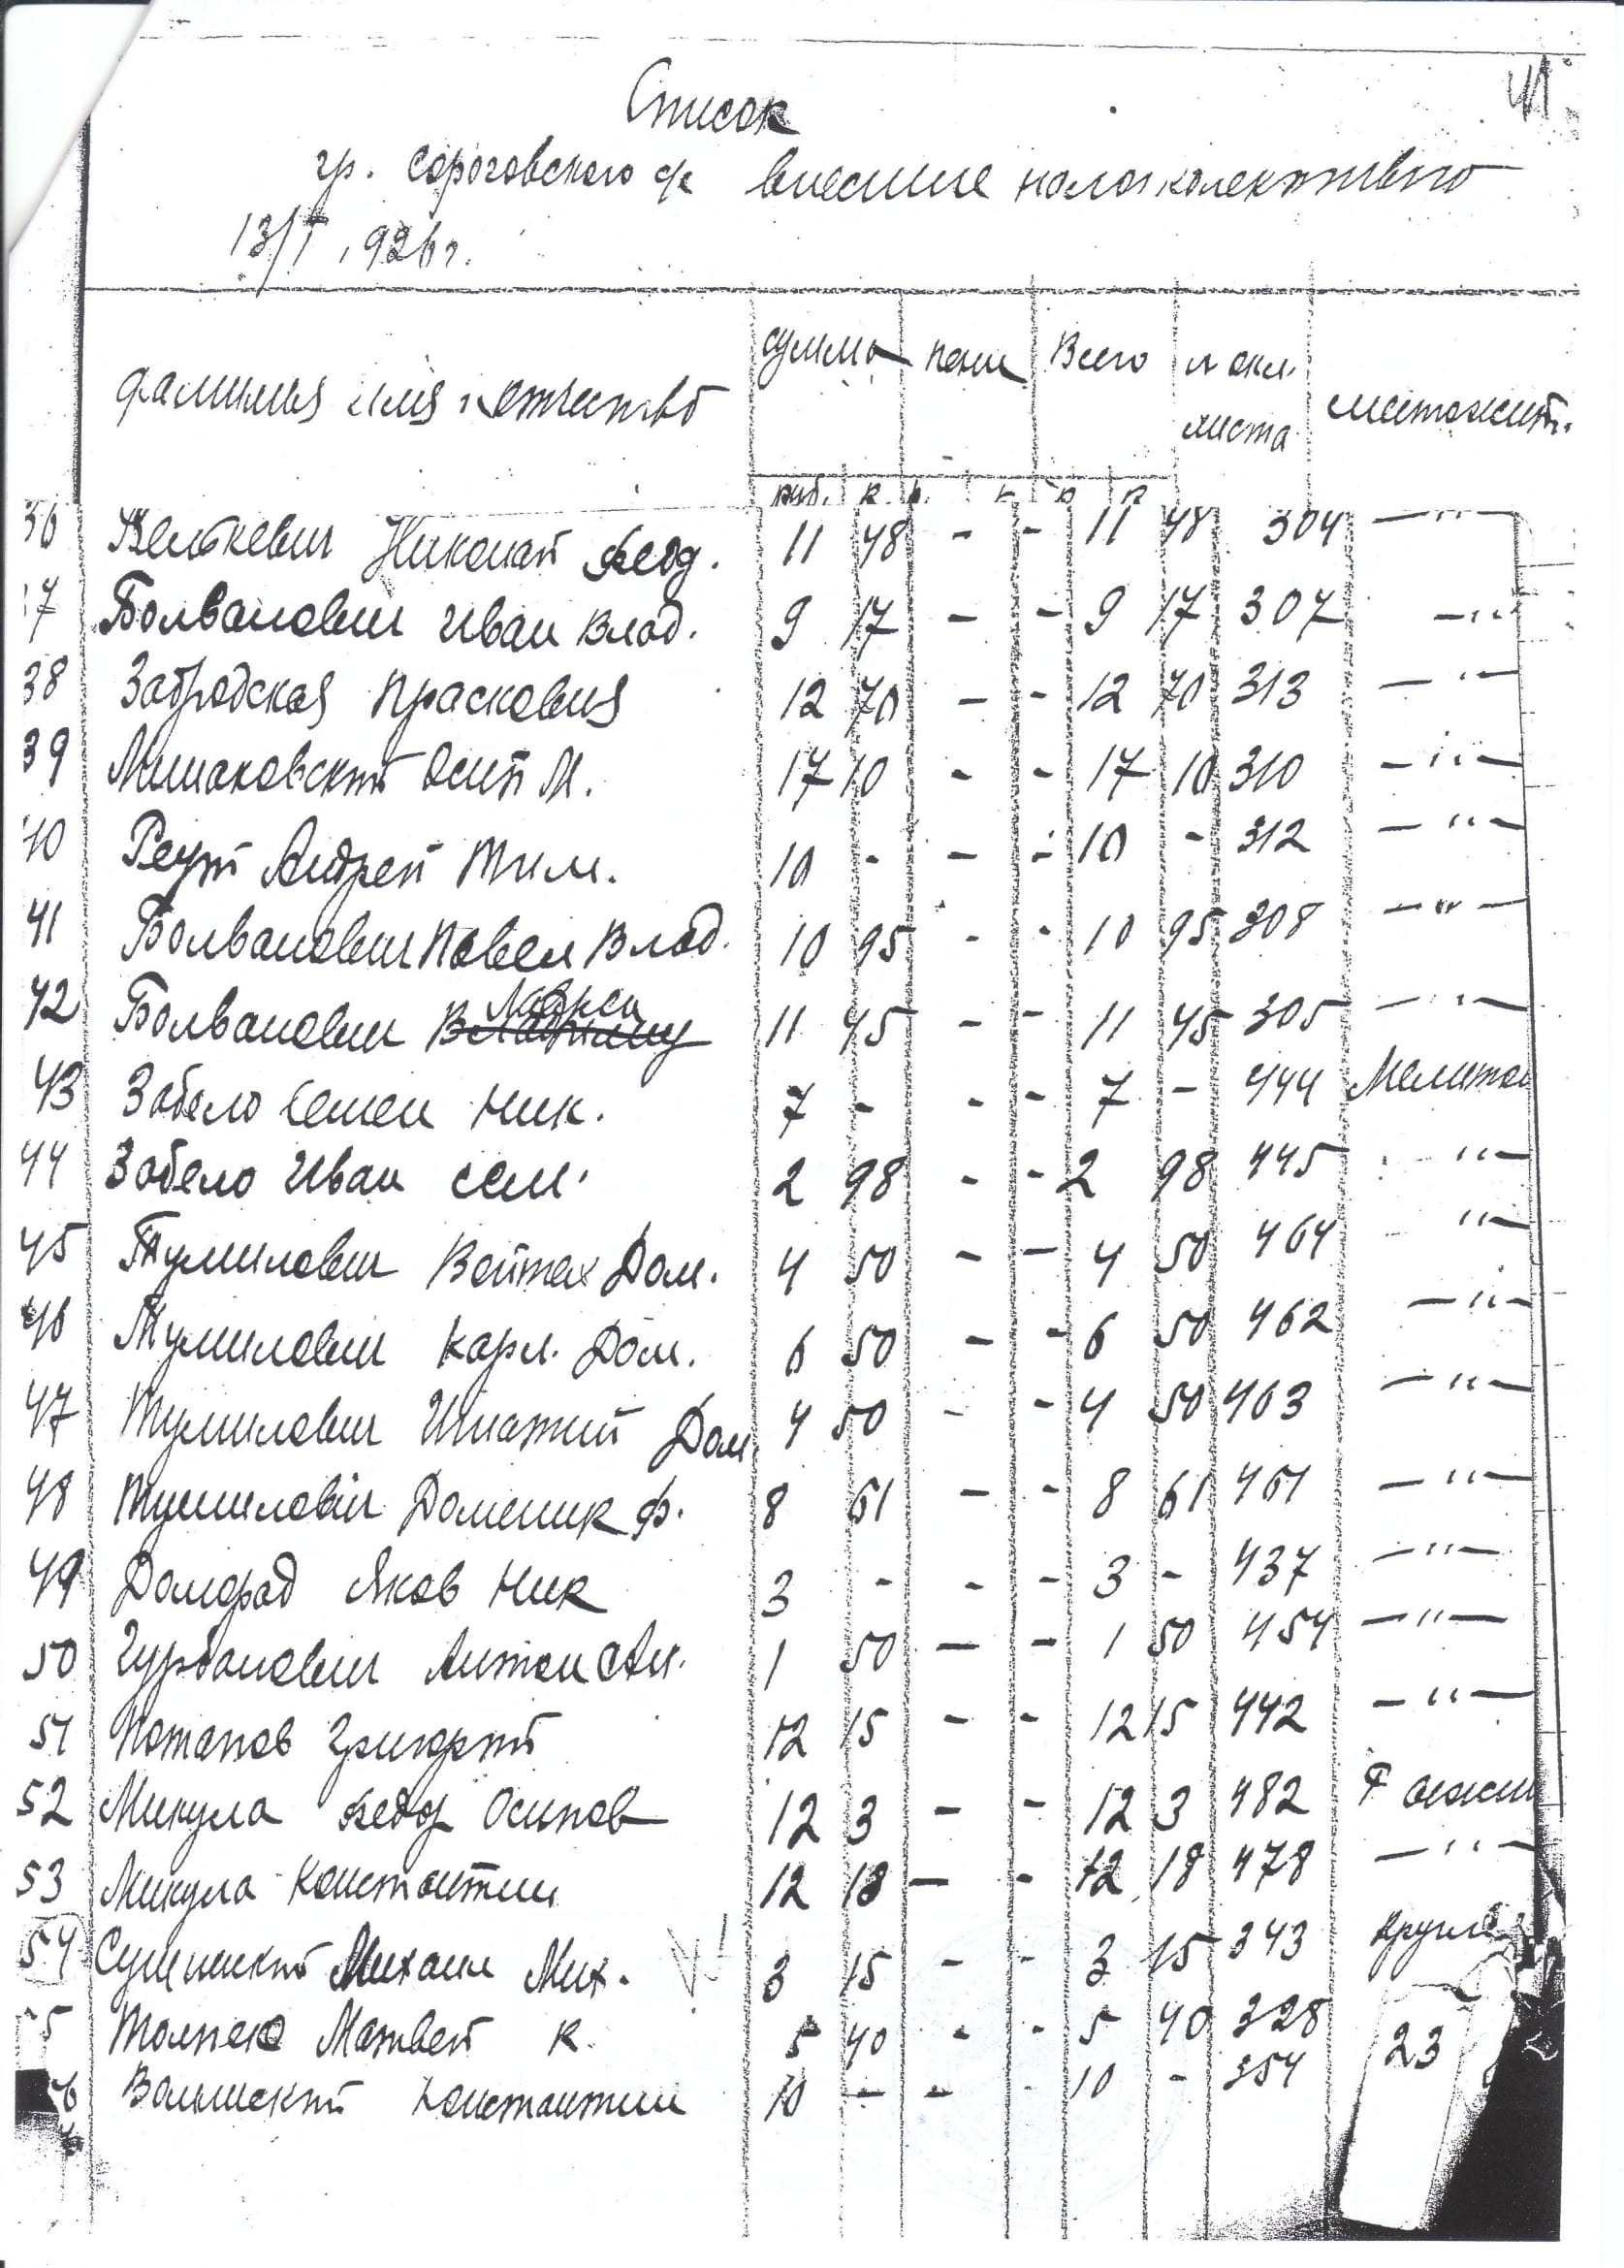 41
Список
гр. Сороговского с/с внесшие налог колективно
13/I 1926 г.
фамилия имя и отчество сумма пени Всего № окл. листа местожит.
руб. к. р. к. р. к.
36 Велькевич Николай Феод. 11 48 - - 11 48 304 — " —
37 Болванович Иван Влад. 9 17 - - 9 17 307 — " —
38 Забродская Прасковия 12 70 - - 12 70 313 — " —
39 Осип М. 17 10 - - 17 10 310 — " —
40 Реут Андрей Тим. 10 - - - 10 - 312 — " —
41 Болванович Павел Влад. 10 95 - - 10 95 308 — " —
42 Болванович 11 45 - - 11 45 305 — " —
43 Забело Семен Ник. 7 - - - 7 - 444
44 Забело Иван Сем. 2 98 - - 2 98 445 " —
45 Тумилович Войтех Дом. 4 50 - - 4 50 464 " —
46 Тумилович Карл. Дом. 6 50 - - 6 50 462 — " —
47 Тумилович Игнатий Дом. 4 50 - - 4 50 463 — " —
48 Тумиловіч Доменик Ф. 8 61 - - 8 61 461 — " —
49 Доморад Яков Ник 3 - - - 3 - 437 — " —
50 Гурбанович Антон Ан. 1 50 - - 1 50 454 — " —
51 Потапов Григорий 12 15 - - 12 15 442 — " —
52 Микула Федор Осипов 12 3 - - 12 3 482
53 Микула Константин 12 18 - - 12 18 478 — " —
54 Сущинский Михаил Мих. 3 15 - - 3 15 343
55 Матвей К. 5 40 - - 5 40 328 23
56 Волынский Константин 10 - - - 10 - 354